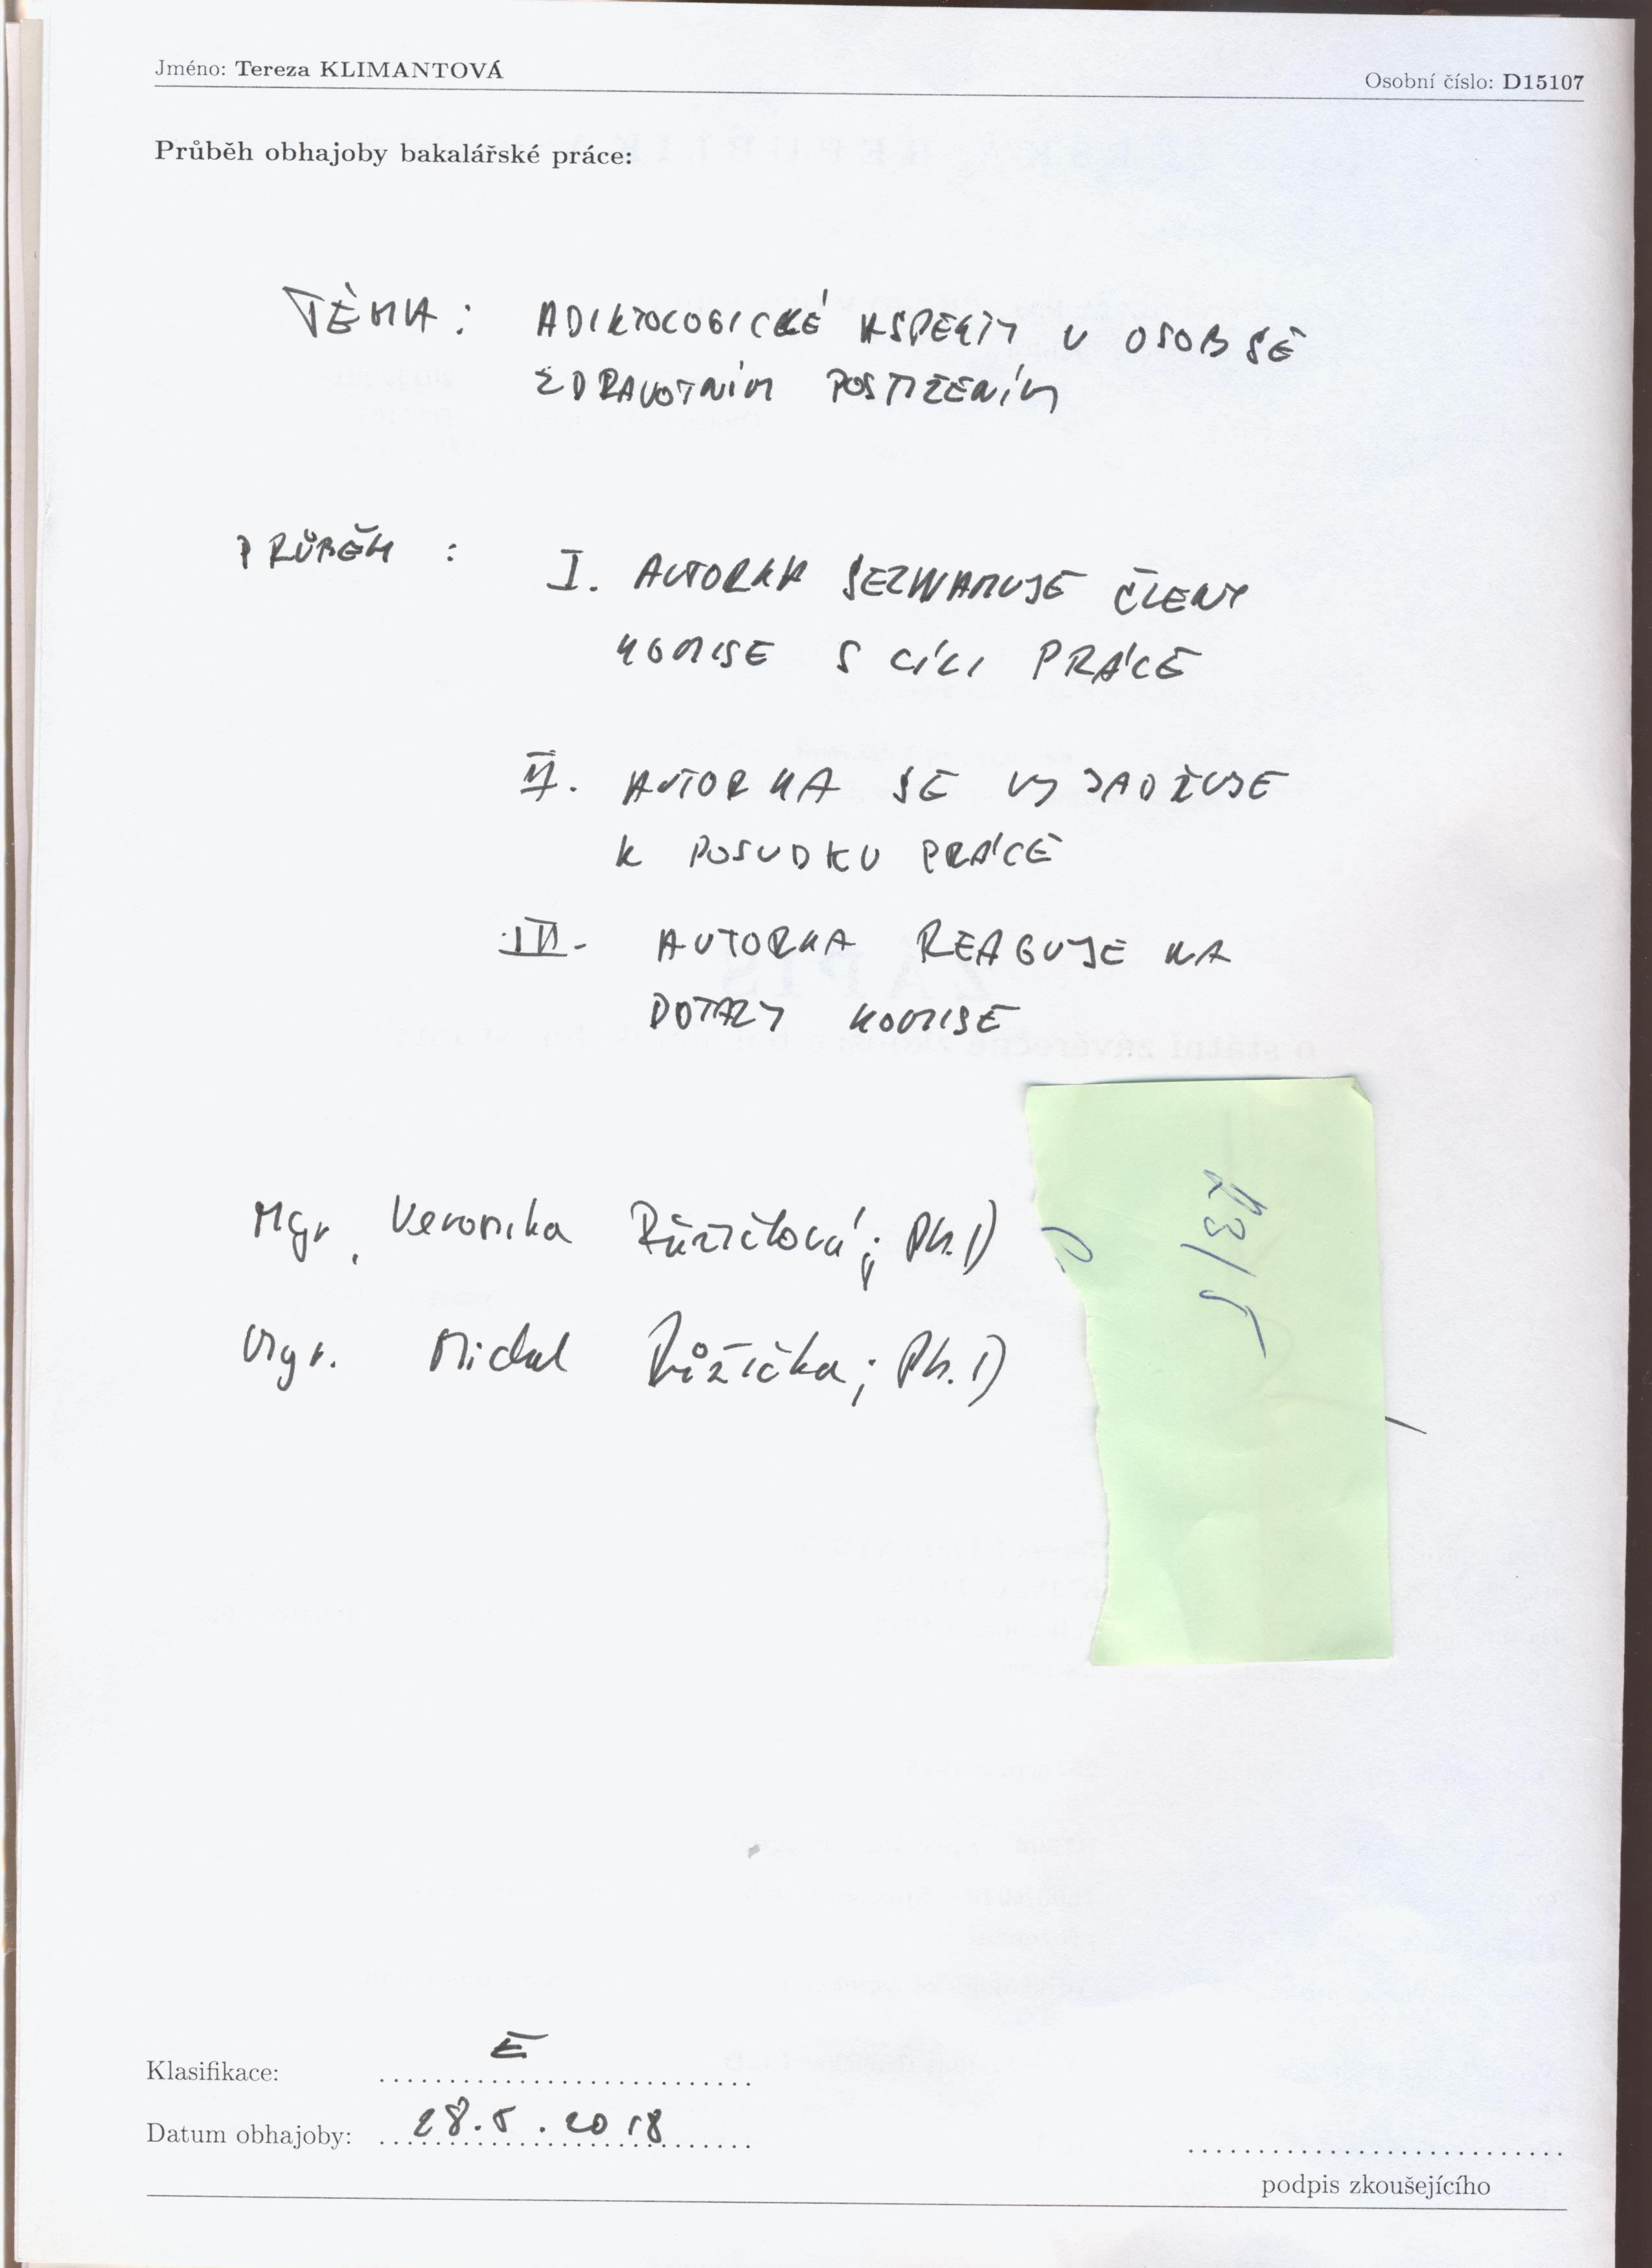 Jméno: Tereza KLIMANTOVÁ
Osobní číslo: D15107
Průběh obhajoby bakalářské práce:
TÉMA: ADIKTOLOGICKÉ ASPEKTY U OSOB SE
ZDRAVOTNÍM POSTIŽENÍM
PRŮBĚH :
I. AUTORKA SEZNAMUJE ČLENY
KOMISE S CÍLI PRÁCE
II. AUTORKA SE VYJADŘUJE
K POSUDKU PRÁCE
III. AUTORKA REAGUJE NA
DOTAZY KOMISE
Mgr. Veronika Růžičková; Ph.D
Mgr. Michal Růžička; Ph.D
Klasifikace: E
Datum obhajoby: 28.5.2018
podpis zkoušejícího